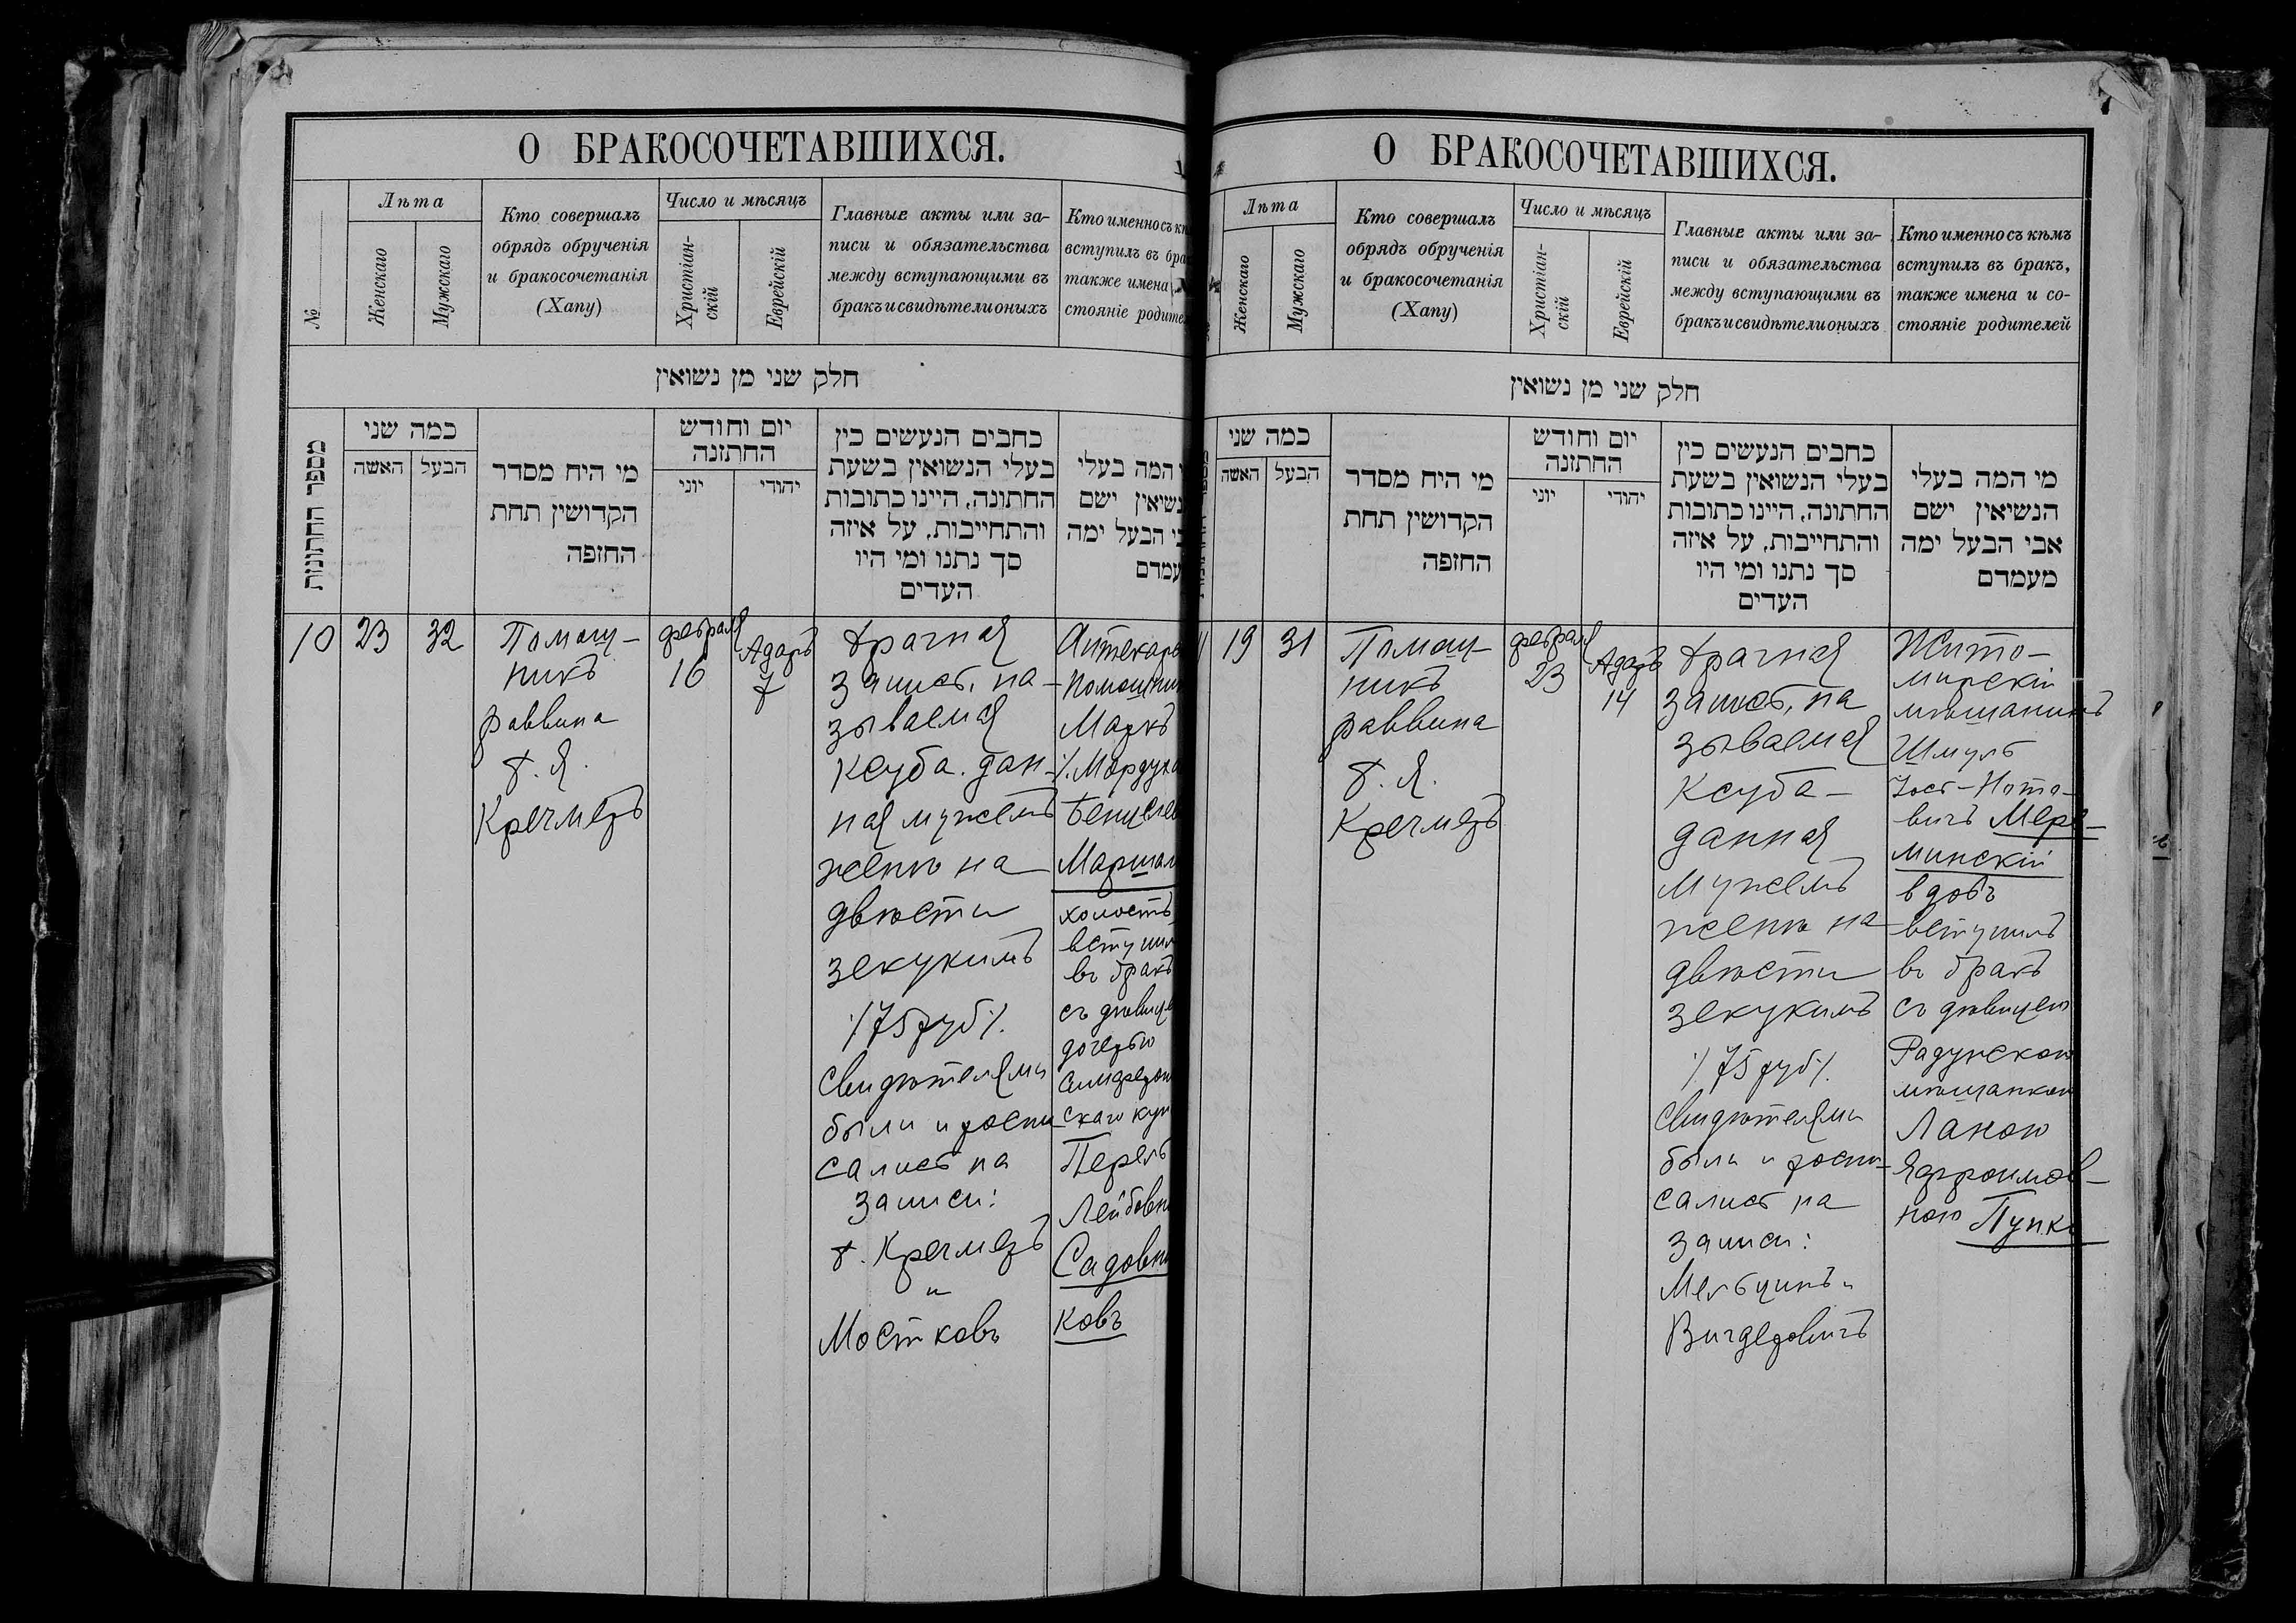 О БРАКОСОЧЕТАВШИХСЯ.
№
Лѣта
Женскаго
Мужскаго
Кто совершалъ
обрядъ обрученія
и бракосочетанія
(Хапу)
Число и мѣсяцъ
Христіан-
скій
Еврейскій
Главные акты или за-
писи и обязательства
между вступающими въ
бракъ и свидѣтели оныхъ
Кто именно съ
вступилъ въ
также имена
стояніе
חלק שני מן נשואין
מספר החתונות
כמה שני
האשה
הבעל
מי היח מסדר
הקדושין תחת
החופה
יום וחודש
החתונה
יוני
יהודי
כתבים הנעשים בין
בעלי הנשואין בשעת
החתונה, היינו כתובות
והתחייבות, על איזה
סך נתנו ומי היו
העדים
המה בעלי
ישם
הבעל ימה
10
23
32
Помощ-
никъ
раввина
Кречмеръ
февраля
16
Адаръ
7
брачная
запись, на-
зываемая
ксуба. дан-
ная мужемъ
женѣ на
двѣсти
зекукимъ
/75 руб/.
Свидѣтелями
были и роспи-
сались на
записи:
Кречмеръ
и
Мостковъ
Маркъ
холостъ
въ бракъ
съ
дочерью
Перель
Садовни
ковъ
О БРАКОСОЧЕТАВШИХСЯ.
Лѣта
Женскаго
Мужскаго
Кто совершалъ
обрядъ обрученія
и бракосочетанія
(Хапу)
Число и мѣсяцъ
Христіан-
скій
Еврейскій
Главные акты или за-
писи и обязательства
между вступающими въ
бракъ и свидѣтели оныхъ
Кто именно съ кѣмъ
вступилъ въ бракъ,
также имена и со-
стояніе родителей
חלק שני מן נשואין
כמה שני
האשה
הבעל
מי היח מסדר
הקדושין תחת
החופה
יום וחודש
החתונה
יוני
יהודי
כתבים הנעשים בין
בעלי הנשואין בשעת
החתונה, היינו כתובות
והתחייבות, על איזה
סך נתנו ומי היו
העדים
מי המה בעלי
הנשיאין ישם
אבי הבעל ימה
מעמדם
11
19
31
Помощ-
никъ
раввина
Кречмеръ
февраля
23
Адаръ
14
брачная
запись, на
зываемая
Ксуба-
данная
мужемъ
женѣ на
двѣсти
зекукимъ
/75 руб/.
Свидѣтелями
были и роспи-
сались на
записи:
Мельцинъ и
Вигдеровичъ
Жито-
мирскій
мѣщанинъ
Шмуль
вичъ Мере-
минскій
вдовъ
вступилъ
въ бракъ
съ дѣвицею
Радунскою
мѣщанкою
Ланою
ною